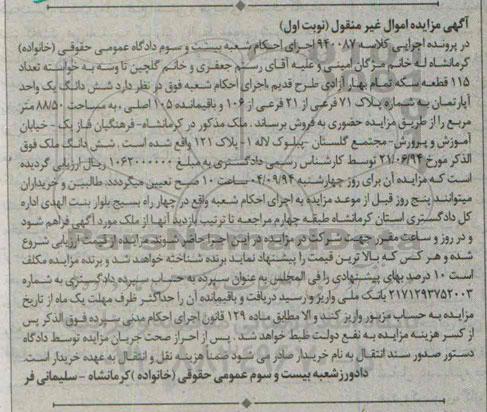 آگهی مزایده اموال غیر منقول (نوبت اول)
در پرونده اجرایی کلاسه ۹۴۰۰۸۷ اجرای احکام شعبه بیست و سوم دادگاه عمومی حقوقی (خانواده)
کرمانشاه له خانم مژگان امینی و علیه آقای رستم جعفری و خانم گلچین تا وسه به خواسته تعداد
۱۱۵ قطعه سکه تمام بهار آزادی طرح قدیم ،اجرای احکام شعبه فوق در نظر دارد شش دانگ یک واحد
آپارتمان به شماره پلاک ۷۱ فرعی از ۲۱ فرعی از ۱۰۶ و باقیمانده ۱۰۵ اصلی ، به مساحت ۸۸/۵۰ متر
مربع را از طریق مزایده حضوری به فروش برساند . ملک مذکور در کرمانشاه- فرهنگیان فاز یک - خیابان
آموزش و پرورش-مجتمع گلستان -بلوک لاله ۱- پلاک ۱۲۱ واقع شده است . شش دانگ ملک فوق
الذکر مورخ ۲۱/۰۶/۹۴ توسط کارشناس رسمی دادگستری به مبلغ ۱۰۶۲۰۰۰۰۰۰ ریال ارزیابی گردیده
است که مزایده آن برای روز چهارشنبه ۰۴/۰۹/۹۴ ساعت ۱۰ صبح تعیین میگردد. طالبین و خریداران
میتوانند پنج روز قبل از موعد مزایده به اجرای احکام شعبه واقع در چهار راه بسیج بلوار بنت الهدی اداره
کل دادگستری استان کرمانشاه طبقه چهارم مراجعه تا ترتیب بازدید آنها از ملک مورد آگهی فراهم شود
و در روز و ساعت مقرر جهت شرکت در مزایده در این اجرا حاضر شوند. مزایده از قیمت ارزیابی شروع
شده و هر کس که بالا ترین قیمت را پیشنهاد نماید برنده شناخته خواهد شد و برنده مزایده مکلف
است ۱۰ درصد بهای پیشنهادی را فی المجلس به عنوان سپرده به حساب سپرده دادگستری به شماره
۲۱۷۱۲۹۳۷۵۲۰۰۳ بانک ملی واریز و رسید دریافت و باقیمانده آن را حداکثر ظرف مهلت یک ماه از تاریخ
مزایده به حساب مزبور واریز کند و الا مطابق ماده ۱۲۹ قانون اجرای احکام مدنی سپرده فوق الذکر پس
از کسر هزینه مزایده به نفع دولت ظبط خواهد شد . پس از احراز صحت جریان مزایده توسط دادگاه
دستور صدور سند انتقال به نام خریدار صادر می شود ضمنا هزینه نقل و انتقال به عهده خریدار است.
دادورز شعبه بیست و سوم عمومی حقوقی (خانواده )کرمانشاه - سلیمانی فر